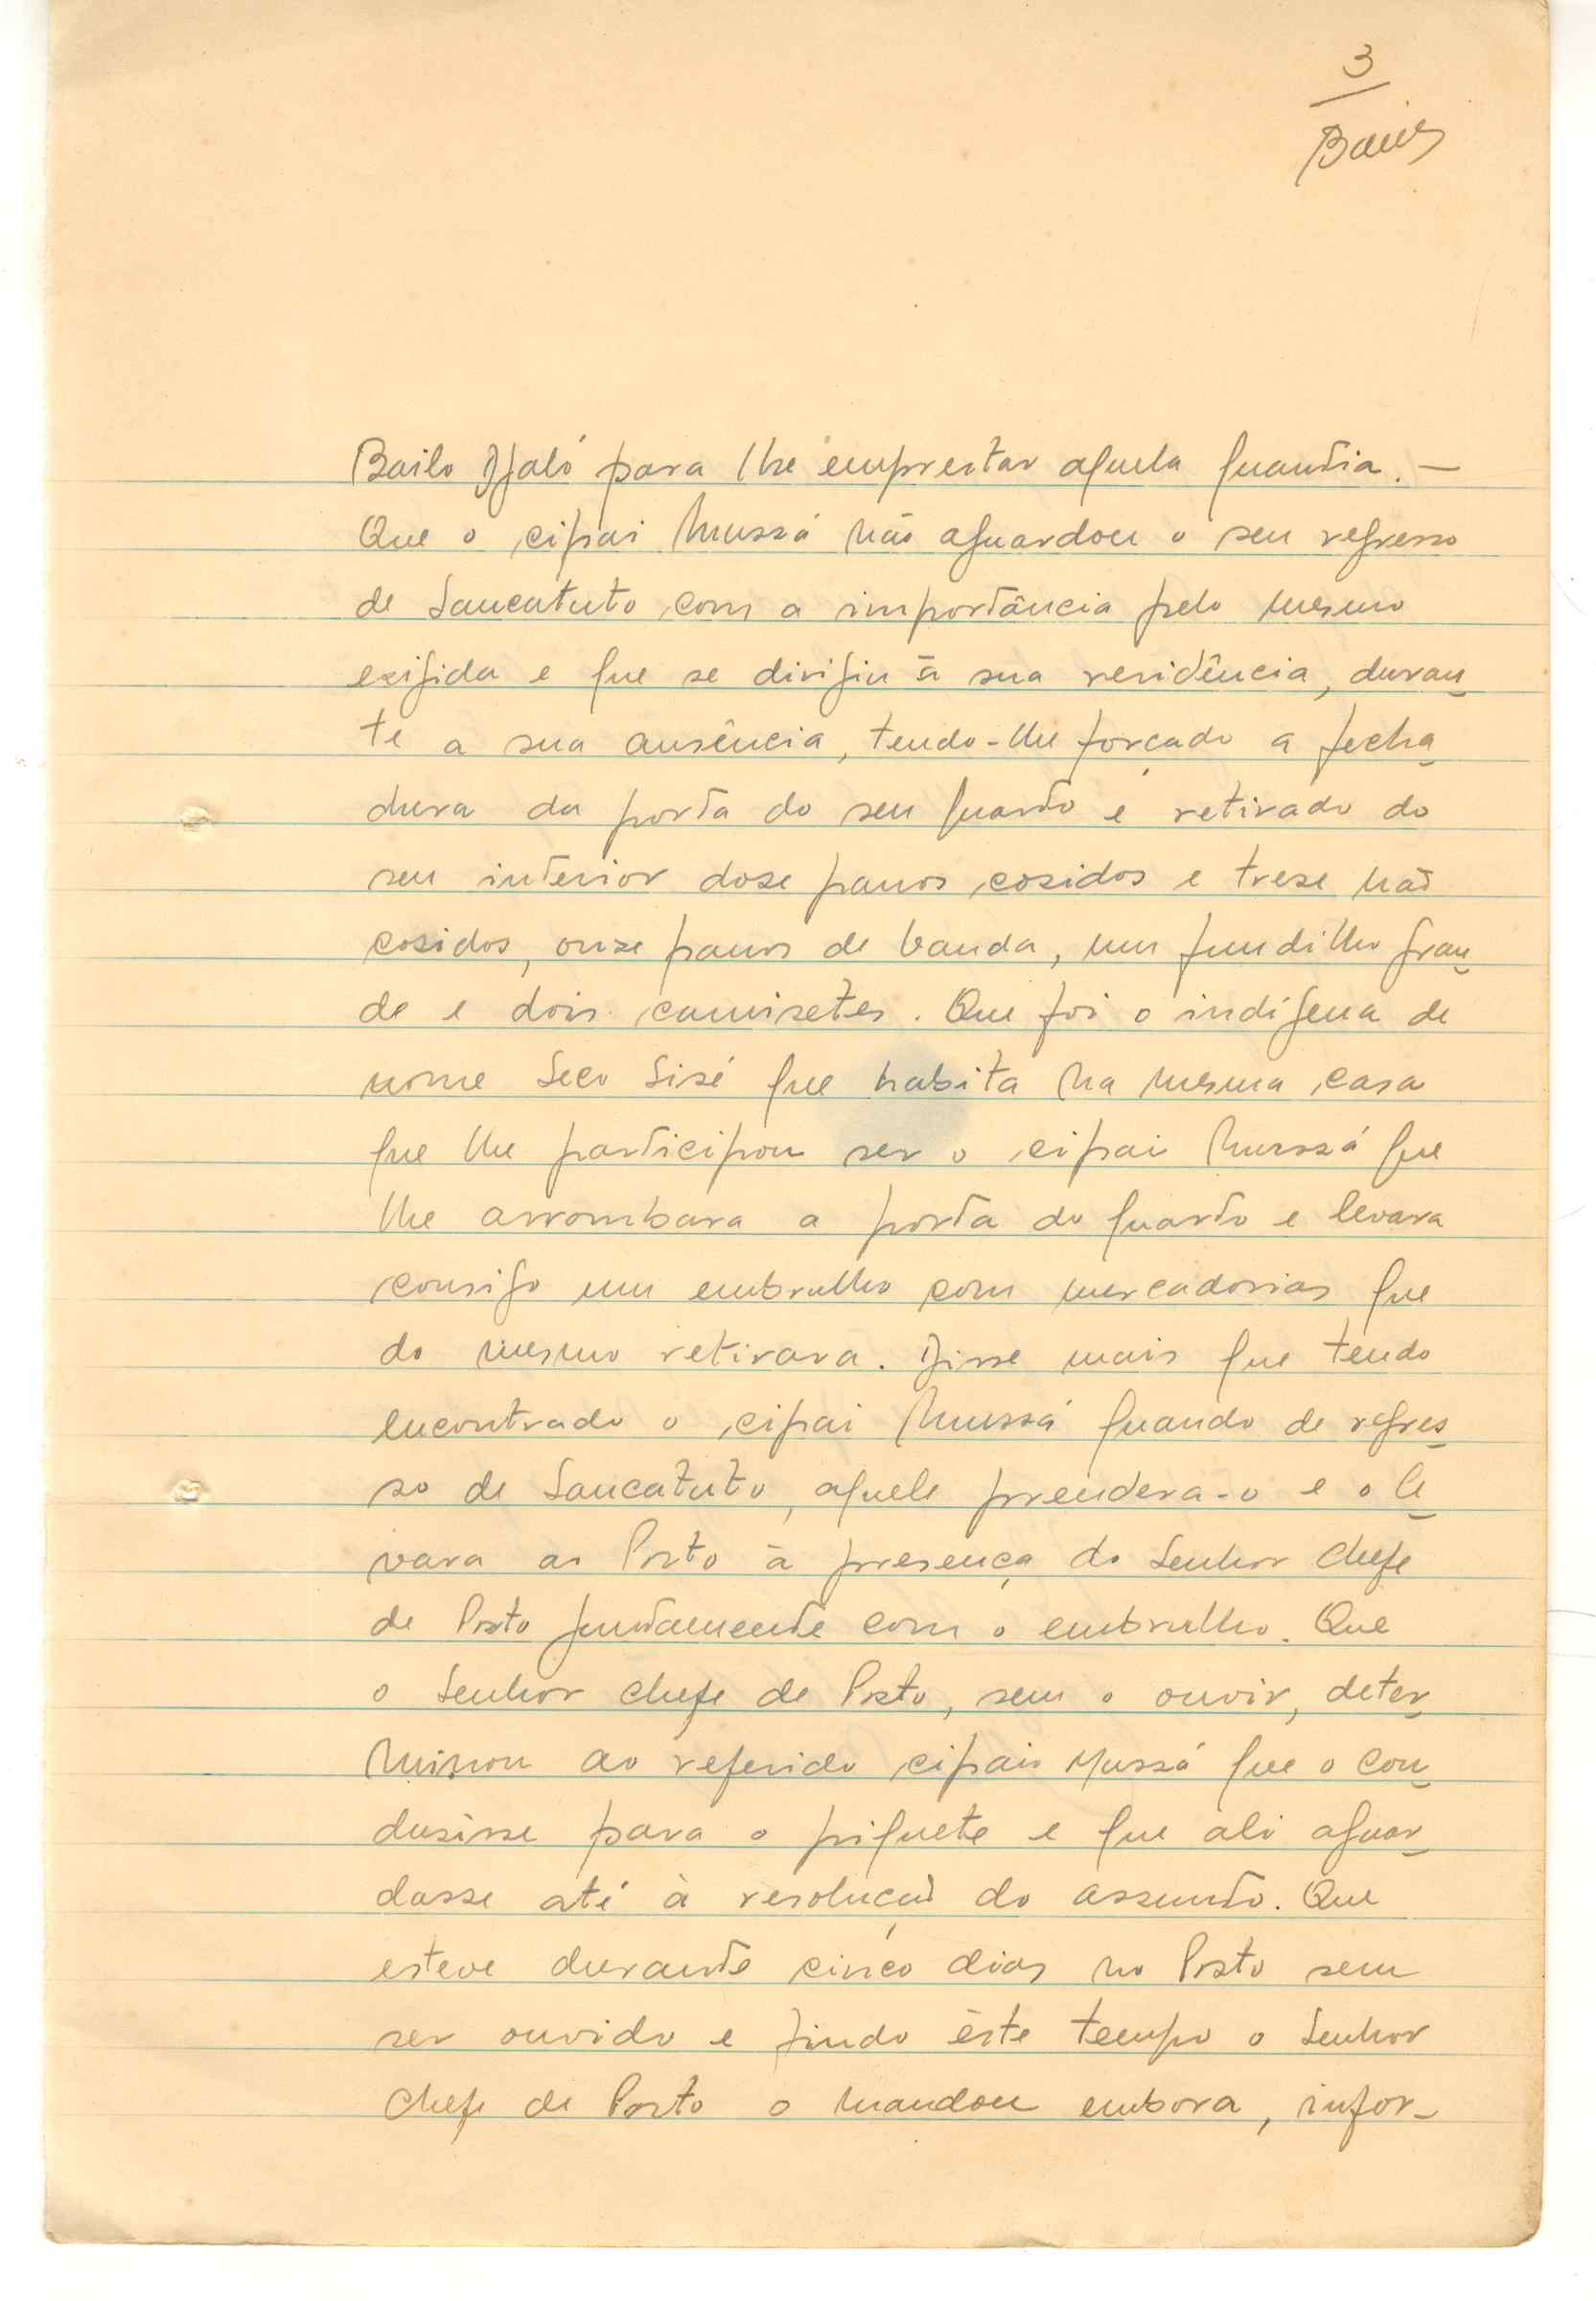 3
Bailo Djaló para lhe emprestar aquela quantia. —
Que o cipai Mussá não aguardou o seu regresso
de Sancatuto com a importância pelo mesmo
exigida e que se dirigiu à sua residência, duran-
te a sua ausência, tendo-lhe forçado a fecha-
dura da porta do seu quarto e retirado do
seu interior doze panos cosidos e treze não
cosidos, onze panos de banda, um fundilho gran-
de e dois camisetes. Que foi o indígena de
nome Seco Sisé que habita na mesma casa
que lhe participou ser o cipai Mussá que
lhe arrombara a porta do quarto e levara
consigo um embrulho com mercadorias que
do mesmo retirara. Disse mais que tendo
encontrado o cipai Mussá quando de regres-
so de Sancatuto, aquele prendera-o e o le-
vara ao Posto à presença do Senhor Chefe
de Posto juntamente com o embrulho. Que
o Senhor Chefe de Posto, sem o ouvir, deter-
minou ao referido cipaio Mussá que o con-
dusisse para o piquete e que ali aguar-
dasse até à resolução do assunto. Que
esteve durante cinco dias no Posto sem
ser ouvido e findo êste tempo o Senhor
Chefe de Posto o mandou embora, infor-